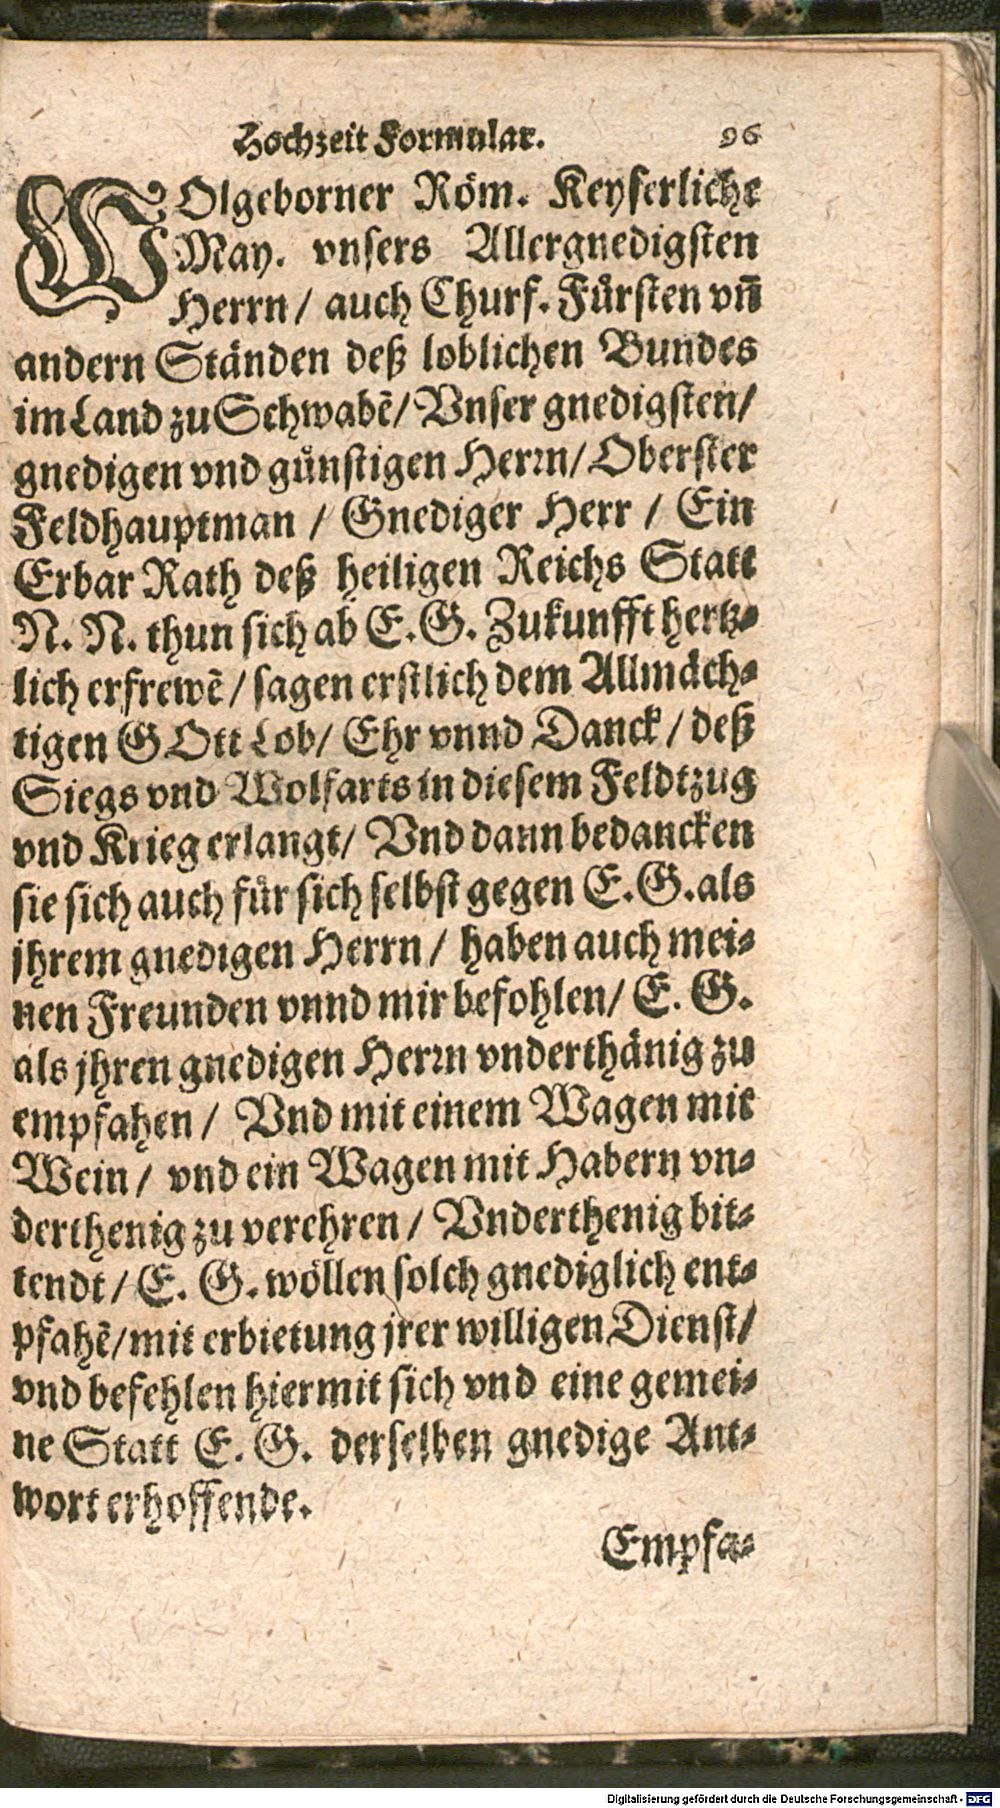 Hochzeit Formular. 96
WOlgeborner Röm. Keyserliche
May. vnsers Allergnedigsten
Herrn / auch Churf. Fürsten vn̄
andern Ständen deß loblichen Bundes
im Land zu Schwabē / Vnser gnedigsten /
gnedigen vnd günstigen Herꝛn / Oberster
Feldhauptman / Gnediger Herr / Ein
Erbar Rath deß heiligen Reichs Statt
N. N. thun sich ab E. G. Zukunfft hertz-
lich erfrewē / sagen erstlich dem Allmäch-
tigen GOtt Lob / Ehr vnnd Danck / deß
Siegs vnd Wolfarts in diesem Feldtzug
vnd Krieg erlangt / Vnd dann bedancken
sie sich auch für sich selbst gegen E. G. als
jhrem gnedigen Herrn / haben auch mei-
nen Freunden vnnd mir befohlen / E. G.
als jhren gnedigen Herꝛn vnderthänig zu
empfahen / Vnd mit einem Wagen mit
Wein / vnd ein Wagen mit Habern vn-
derthenig zu verehren / Vnderthenig bit-
tendt / E. G. wöllen solch gnediglich ent-
pfahē / mit erbietung jrer willigen Dienst /
vnd befehlen hiermit sich vnd eine gemei-
ne Statt E. G. derselben gnedige Ant-
wort erhoffende.
Empfa-
Digitalisierung gefördert durch die Deutsche Forschungsgemeinschaft - DFG